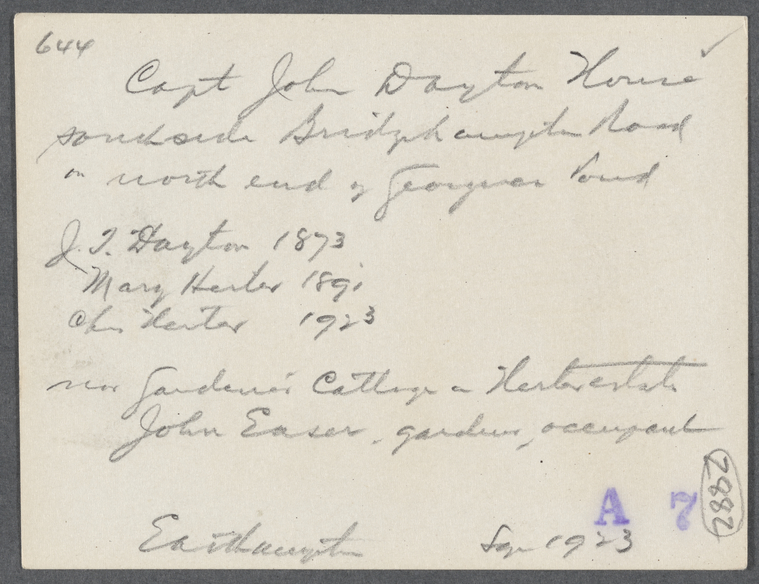 644
Capt John Dayton House
southside Bridgehampton Road
on north end of Georgica Pond
J. T. Dayton 1873
Mary Herter 189
Chas Herter 1923
now Gardener's Cottage on Herter estate
John Easer, gardener, occupant
A 7
2882
Easthampton Sep 1923